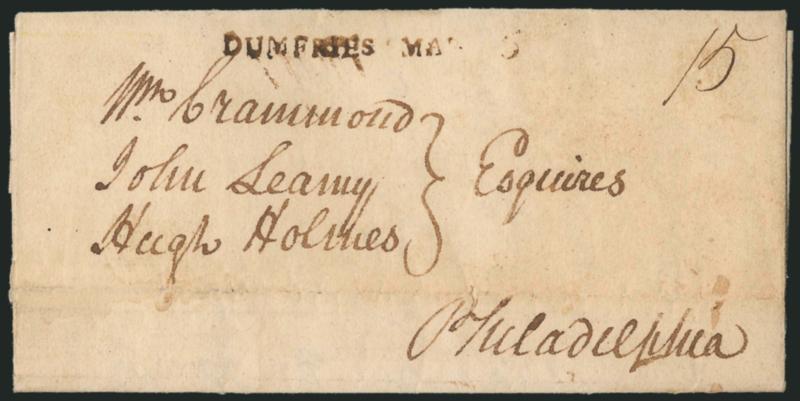 DUMFRIES MA
15
Wm Crammond
John Leamy
Hugh Holmes
Esquires
Philadelphia